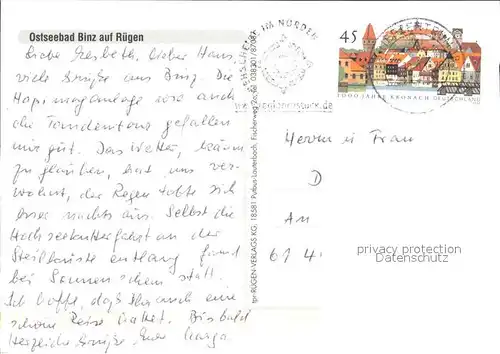 Ostseebad Binz auf Rügen
Liebe Elsbeth, lieber Hans,
viele Grüße aus Binz. Die
Hapimaganlage und auch
die Tandemtour gefallen
mir gut. Das Wetter, kaum
zu glauben, hat uns ver-
wöhnt, der Regen tobte sich
immer nachts aus. Selbst die
Hochseekutterfahrt an der
Steilküste entlang fand
bei Sonnenschein statt.
Ich hoffe, daß Ihr auch eine
schöne Reise hattet. Bis bald
Herzliche Grüße, Eure
rpr-RÜGEN-VERLAGS KG, 18581 Putbus-Lauterbach, Fischerweg
IM NORDEN
45
1000 JAHRE KRONACH
DEUTSCHLAND
Herrn u Frau
D
An
61 4
privacy protection
Datenschutz